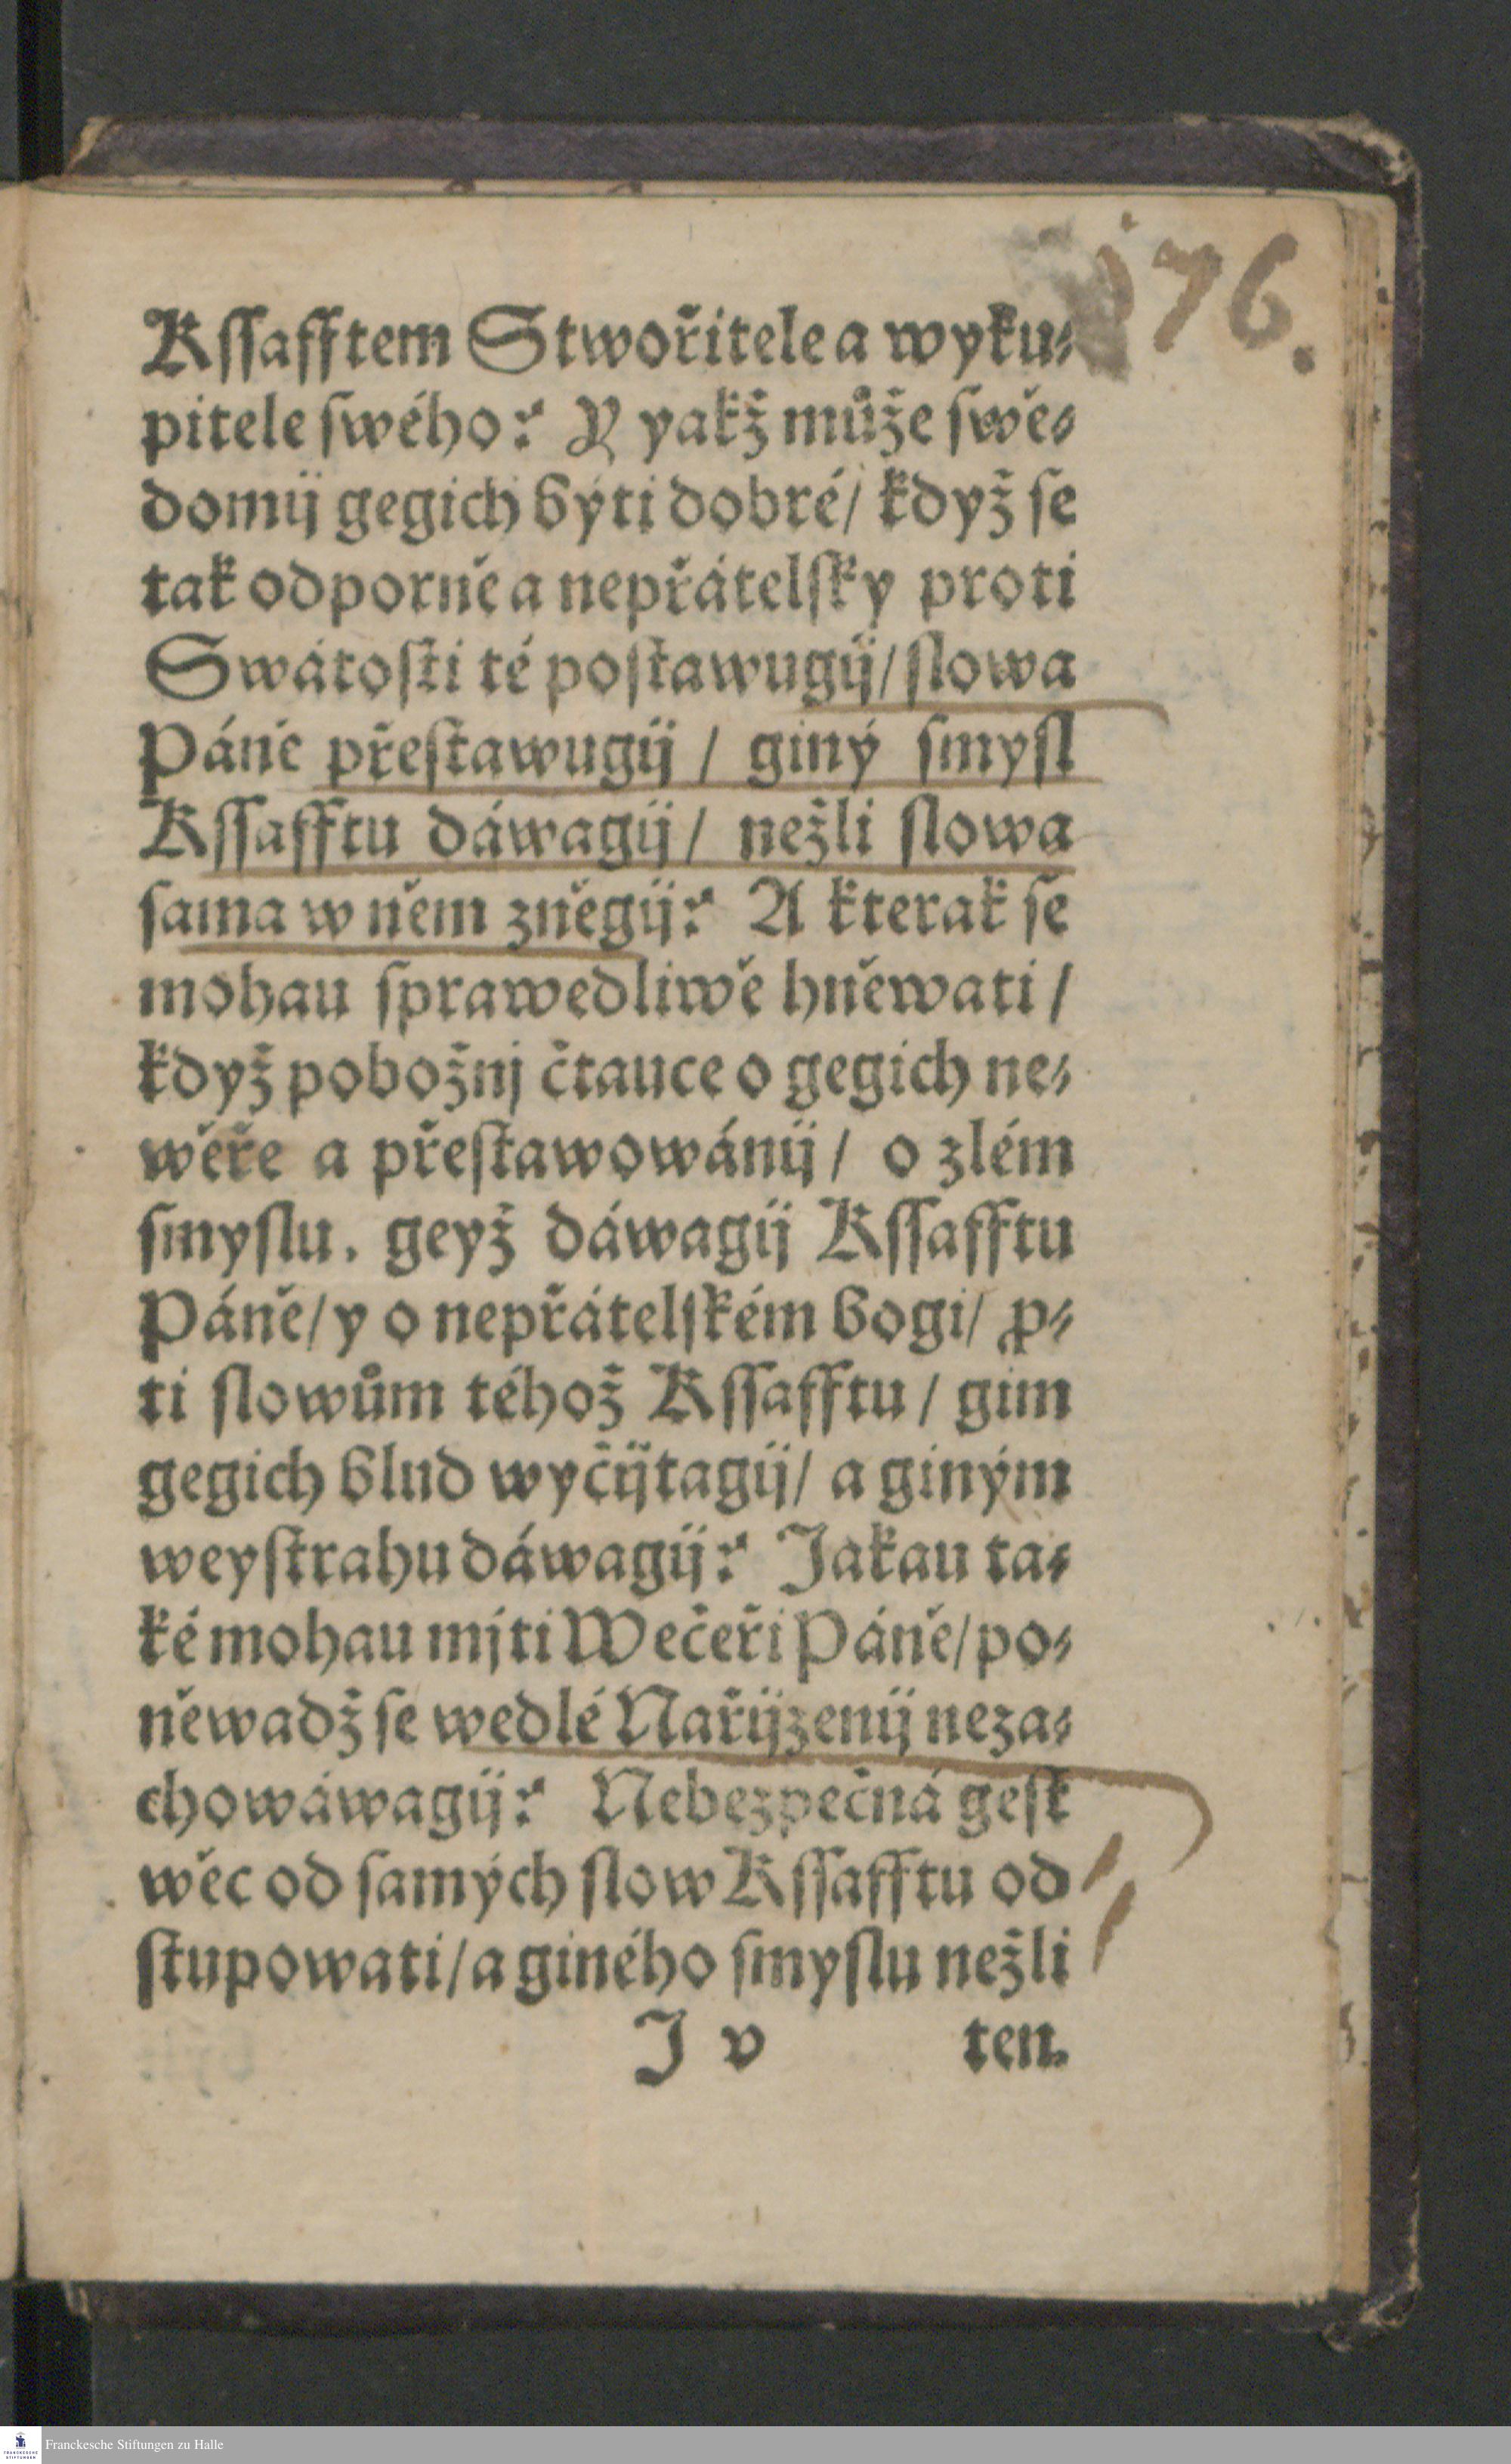 176.
Kſſafftem Stwořitele a wyku⸗
pitele ſwého? Y yakž může ſwě⸗
domij gegich býti dobré/ když ſe
tak odporně a nepřátelſky proti
Swátoſti té poſtawugij/ ſlowa
Páně přeſtawugij / giný ſmyſl
Kſſafftu dáwagij/ nežli ſlowa
ſama w něm zněgij? A kterak ſe
mohau ſprawedliwě hněwati /
když pobožnj čtauce o gegich ne⸗
wěře a přeſtawowánij / o zlém
ſmyſlu. geyž dáwagij Kſſafftu
Páně/ y o nepřátelſkém bogi/ ꝓ⸗
ti ſlowům téhož Kſſafftu / gim
gegich blud wyčijtagij/ a giným
weyſtrahu dáwagij? Jakau ta⸗
ké mohau mjti Wečeři Páně/ po⸗
něwadž ſe wedlé Nařijzenij neza⸗
chowáwagij? Nebezpečná geſt
wěc od ſamých ſlow Kſſafftu od
ſtupowati/ a giného ſmyſlu nežli
J v ten.
Franckesche Stiftungen zu Halle